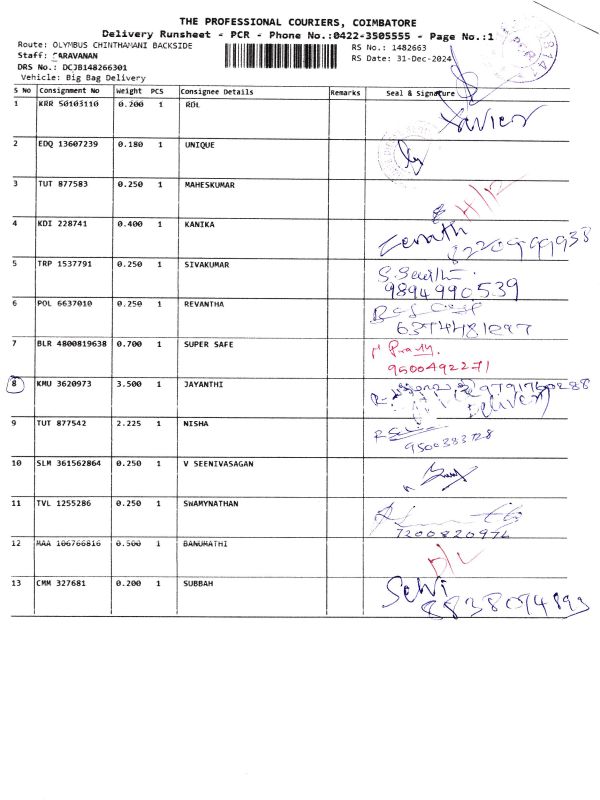 THE PROFESSIONAL COURIERS, COIMBATORE
Delivery Runsheet - PCR - Phone No.:0422-3505555 - Page No.:1
Route: OLYMBUS CHINTHAMANI BACKSIDE
RS No.: 1482663
Staff: SARAVANAN
RS Date: 31-Dec-2024
DRS No.: DCJB148266301
Vehicle: Big Bag Delivery
S No Consignment No Weight PCS Consignee Details Remarks Seal & Signature
1 KRR 50103110 0.200 1 ROL Xavier
2 EDQ 13607239 0.180 1 UNIQUE
3 TUT 877583 0.250 1 MAHESKUMAR
4 KDI 228741 0.400 1 KANIKA Zenith
8220999938
5 TRP 1537791 0.250 1 SIVAKUMAR
9894990539
6 POL 6637010 0.250 1 REVANTHA
7 BLR 4800819638 0.700 1 SUPER SAFE
9500492271
8 KMU 3620973 3.500 1 JAYANTHI 9791760288
Delivery
9 TUT 877542 2.225 1 NISHA
9500383728
10 SLM 361562864 0.250 1 V SEENIVASAGAN
11 TVL 1255286 0.250 1 SWAMYNATHAN
7200820976
12 MAA 106766816 0.500 1 BANUMATHI D/L
13 CMM 327681 0.200 1 SUBBAH Selvi
8838094893